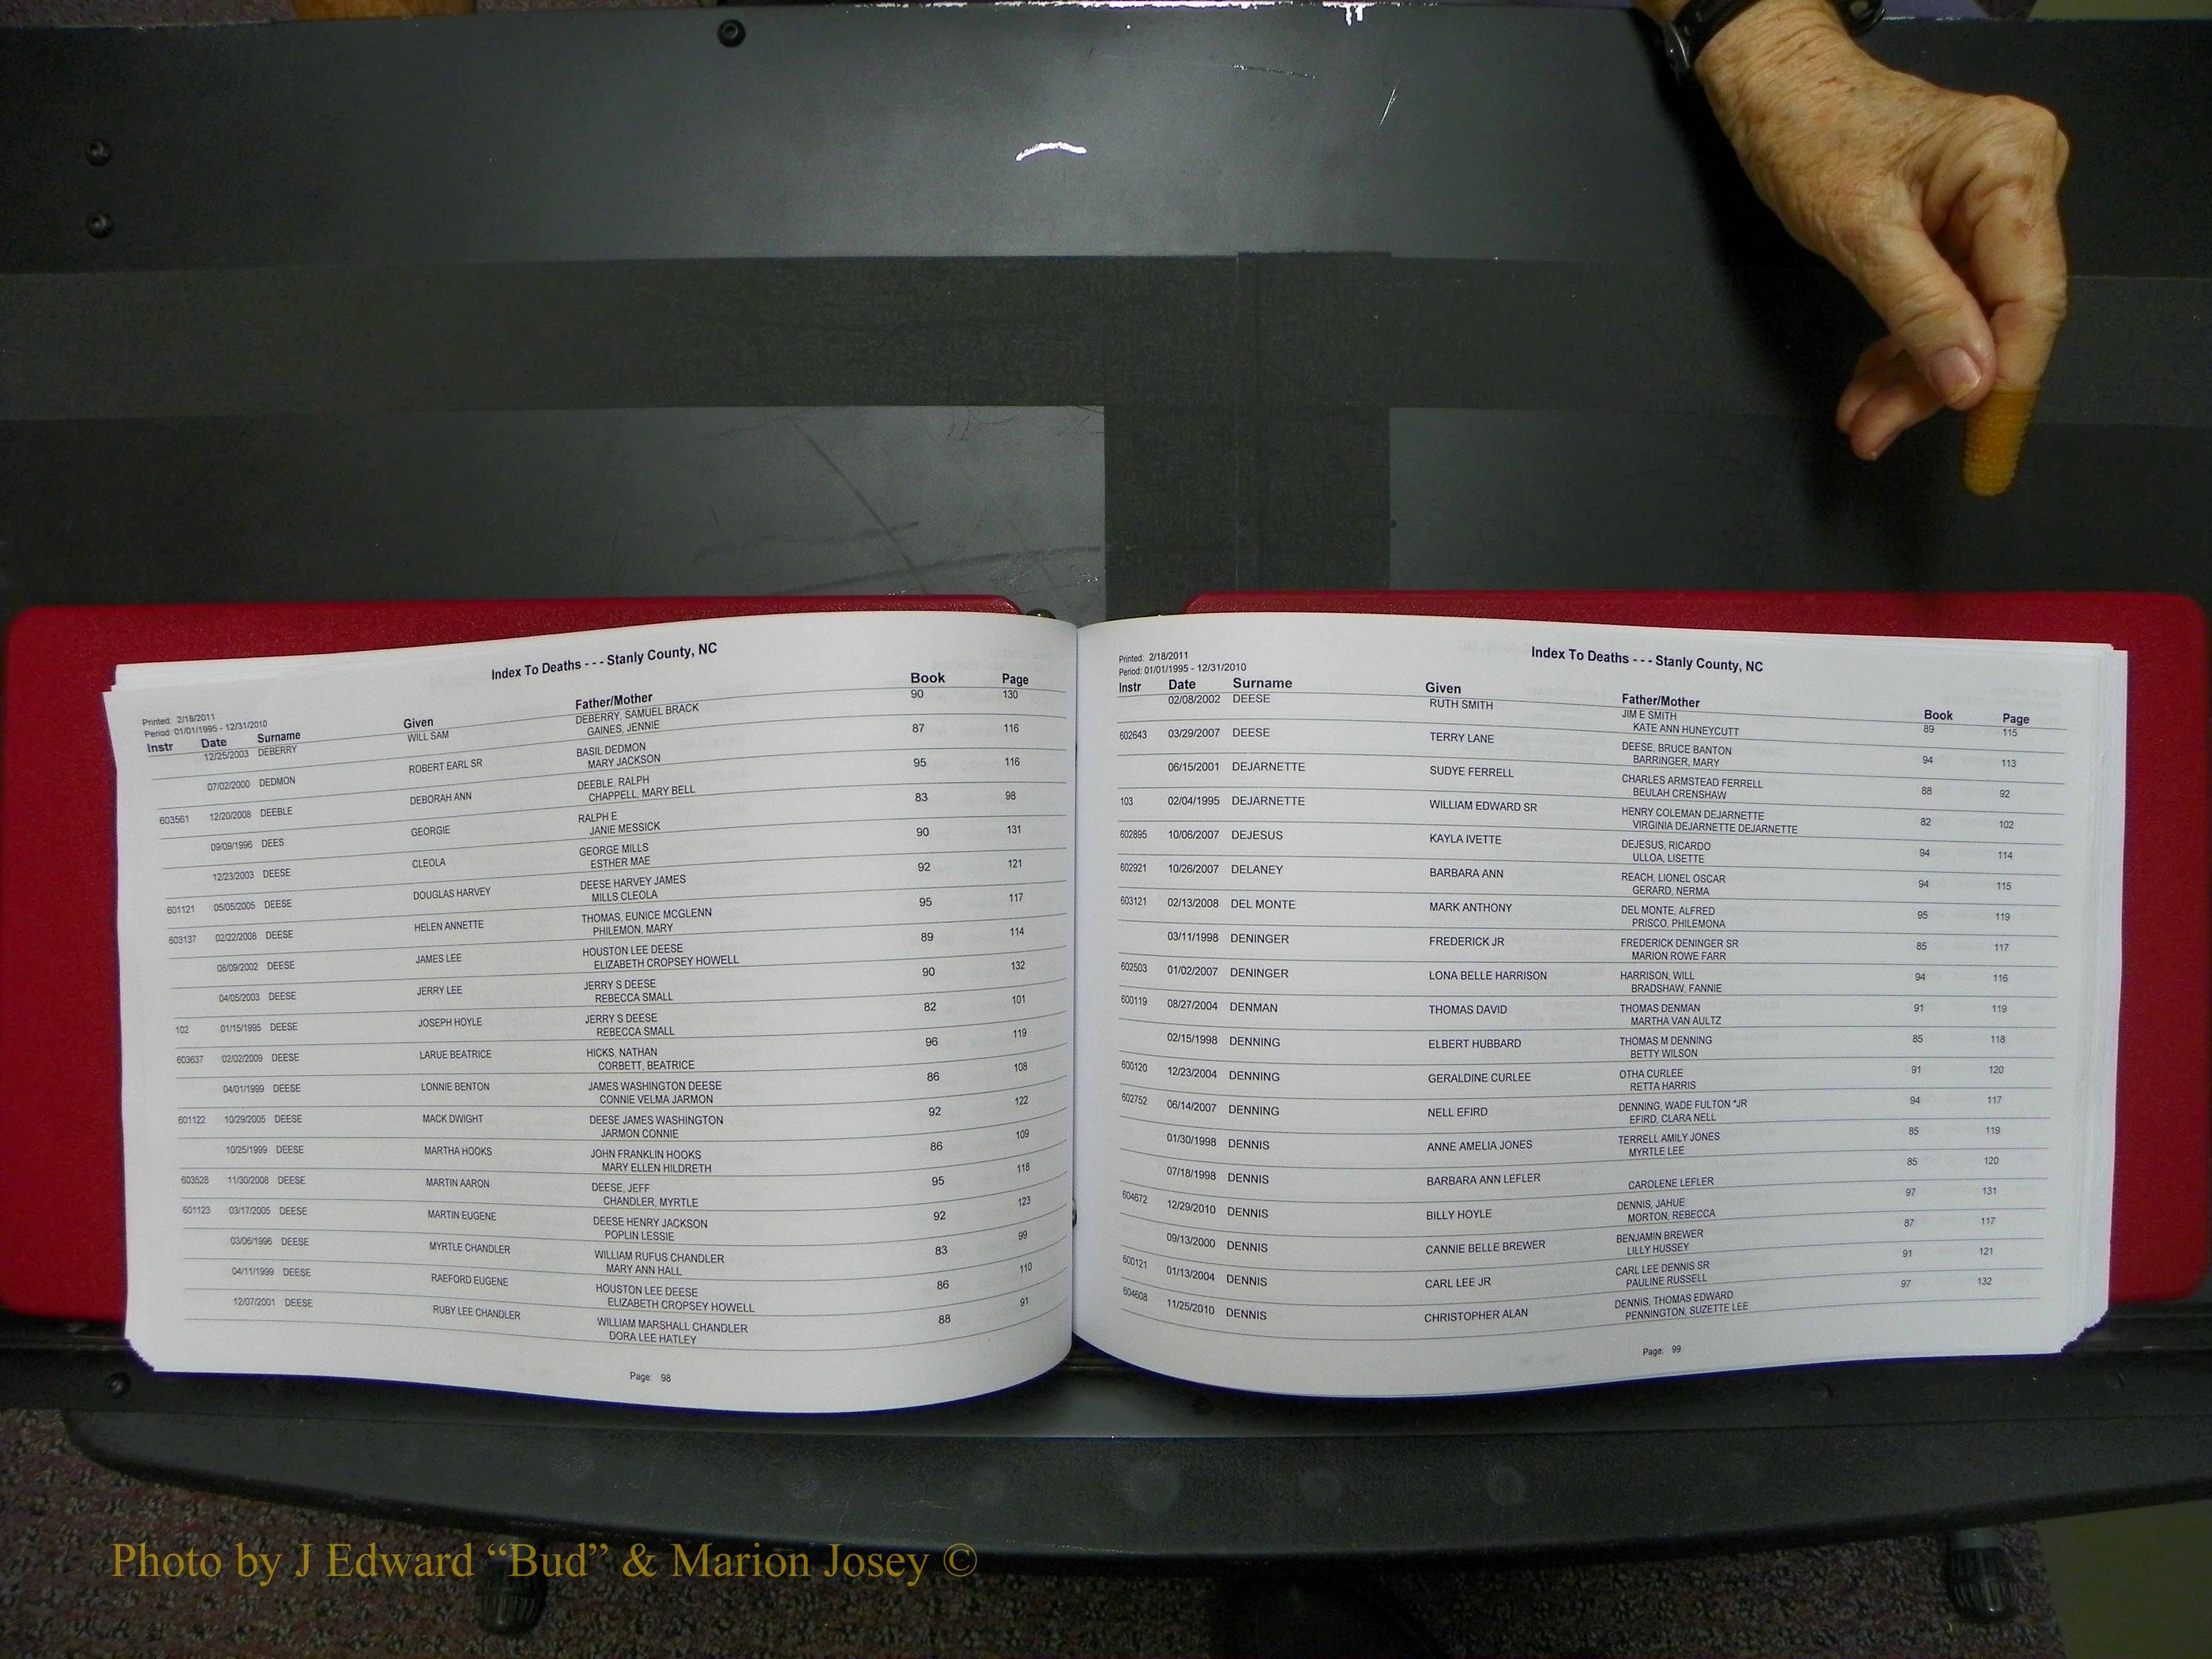 Index To Deaths - - - Stanly County, NC
Printed: 2/18/2011
Period: 01/01/1995 - 12/31/2010
Instr Date Surname Given Father/Mother Book Page
12/25/2003 DEBERRY WILL SAM DEBERRY, SAMUEL BRACK 90 130
GAINES, JENNIE
07/02/2000 DEDMON ROBERT EARL SR BASIL DEDMON 87 116
MARY JACKSON
603561 12/20/2008 DEEBLE DEBORAH ANN DEEBLE, RALPH 95 116
CHAPPELL, MARY BELL
09/09/1996 DEES GEORGIE RALPH E 83 98
JANIE MESSICK
12/23/2003 DEESE CLEOLA GEORGE MILLS 90 131
ESTHER MAE
601121 05/05/2005 DEESE DOUGLAS HARVEY DEESE HARVEY JAMES 92 121
MILLS CLEOLA
603137 02/22/2008 DEESE HELEN ANNETTE THOMAS, EUNICE MCGLENN 95 117
PHILEMON, MARY
08/09/2002 DEESE JAMES LEE HOUSTON LEE DEESE 89 114
ELIZABETH CROPSEY HOWELL
04/05/2003 DEESE JERRY LEE JERRY S DEESE 90 132
REBECCA SMALL
102 01/15/1995 DEESE JOSEPH HOYLE JERRY S DEESE 82 101
REBECCA SMALL
603637 02/02/2009 DEESE LARUE BEATRICE HICKS, NATHAN 96 119
CORBETT, BEATRICE
04/01/1999 DEESE LONNIE BENTON JAMES WASHINGTON DEESE 86 108
CONNIE VELMA JARMON
601122 10/29/2005 DEESE MACK DWIGHT DEESE JAMES WASHINGTON 92 122
JARMON CONNIE
10/25/1999 DEESE MARTHA HOOKS JOHN FRANKLIN HOOKS 86 109
MARY ELLEN HILDRETH
603528 11/30/2008 DEESE MARTIN AARON DEESE, JEFF 95 118
CHANDLER, MYRTLE
601123 03/17/2005 DEESE MARTIN EUGENE DEESE HENRY JACKSON 92 123
POPLIN LESSIE
03/06/1996 DEESE MYRTLE CHANDLER WILLIAM RUFUS CHANDLER 83 99
MARY ANN HALL
04/11/1999 DEESE RAEFORD EUGENE HOUSTON LEE DEESE 86 110
ELIZABETH CROPSEY HOWELL
12/07/2001 DEESE RUBY LEE CHANDLER WILLIAM MARSHALL CHANDLER 88 91
DORA LEE HATLEY
Page: 98
Index To Deaths - - - Stanly County, NC
Printed: 2/18/2011
Period: 01/01/1995 - 12/31/2010
Instr Date Surname Given Father/Mother Book Page
02/08/2002 DEESE RUTH SMITH JIM E SMITH 89 115
KATE ANN HUNEYCUTT
602643 03/29/2007 DEESE TERRY LANE DEESE, BRUCE BANTON 94 113
BARRINGER, MARY
06/15/2001 DEJARNETTE SUDYE FERRELL CHARLES ARMSTEAD FERRELL 88 92
BEULAH CRENSHAW
103 02/04/1995 DEJARNETTE WILLIAM EDWARD SR HENRY COLEMAN DEJARNETTE 82 102
VIRGINIA DEJARNETTE DEJARNETTE
602895 10/06/2007 DEJESUS KAYLA IVETTE DEJESUS, RICARDO 94 114
ULLOA, LISETTE
602921 10/26/2007 DELANEY BARBARA ANN REACH, LIONEL OSCAR 94 115
GERARD, NERMA
603121 02/13/2008 DEL MONTE MARK ANTHONY DEL MONTE, ALFRED 95 119
PRISCO, PHILEMONA
03/11/1998 DENINGER FREDERICK JR FREDERICK DENINGER SR 85 117
MARION ROWE FARR
602503 01/02/2007 DENINGER LONA BELLE HARRISON HARRISON, WILL 94 116
BRADSHAW, FANNIE
600119 08/27/2004 DENMAN THOMAS DAVID THOMAS DENMAN 91 119
MARTHA VAN AULTZ
02/15/1998 DENNING ELBERT HUBBARD THOMAS M DENNING 85 118
BETTY WILSON
600120 12/23/2004 DENNING GERALDINE CURLEE OTHA CURLEE 91 120
RETTA HARRIS
602752 06/14/2007 DENNING NELL EFIRD DENNING, WADE FULTON *JR 94 117
EFIRD, CLARA NELL
01/30/1998 DENNIS ANNE AMELIA JONES TERRELL AMILY JONES 85 119
MYRTLE LEE
07/18/1998 DENNIS BARBARA ANN LEFLER 85 120
CAROLENE LEFLER
604672 12/29/2010 DENNIS BILLY HOYLE DENNIS, JAHUE 97 131
MORTON, REBECCA
09/13/2000 DENNIS CANNIE BELLE BREWER BENJAMIN BREWER 87 117
LILLY HUSSEY
600121 01/13/2004 DENNIS CARL LEE JR CARL LEE DENNIS SR 91 121
PAULINE RUSSELL
604608 11/25/2010 DENNIS CHRISTOPHER ALAN DENNIS, THOMAS EDWARD 97 132
PENNINGTON, SUZETTE LEE
Page: 99
Photo by J Edward “Bud” & Marion Josey ©